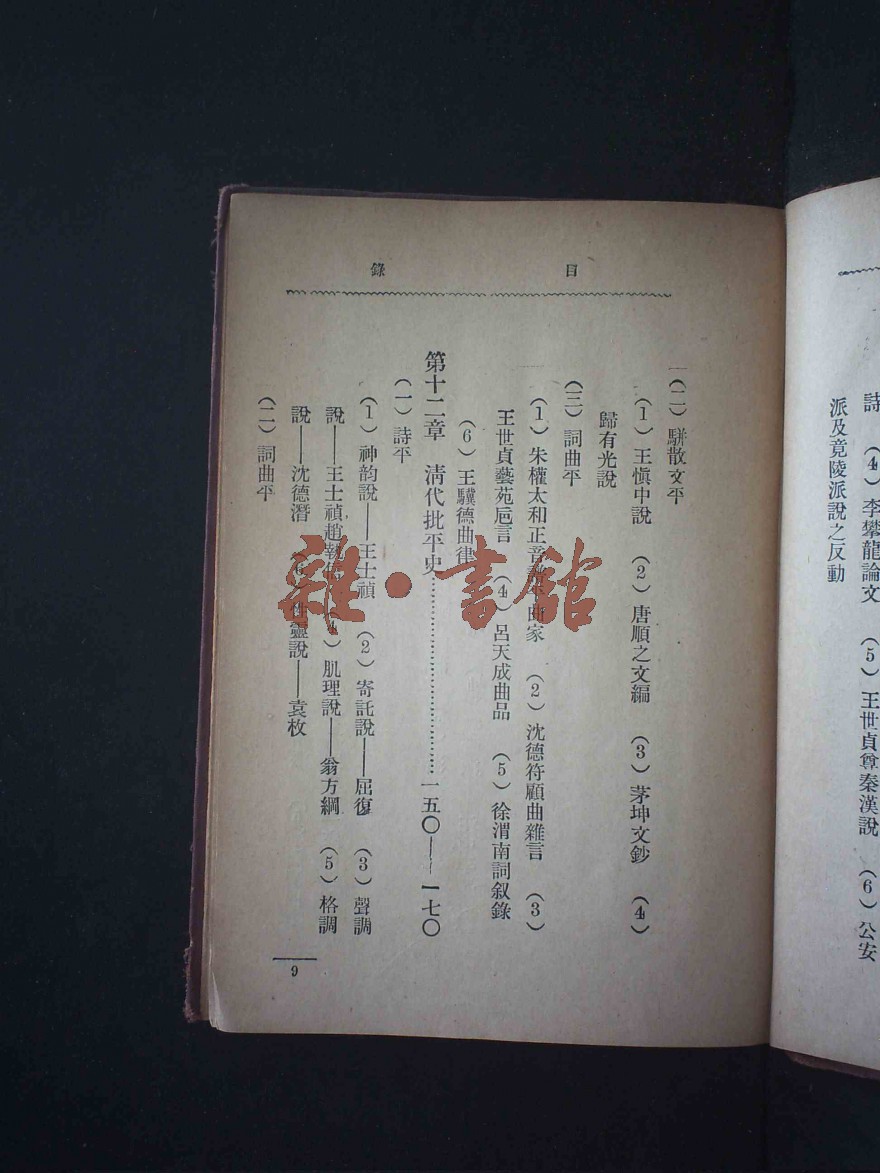 詩　（4）李攀龍論文　（5）王世貞尊秦漢說　（6）公安
派及竟陵派說之反動
目錄
（二）駢散文平
（1）王愼中說　（2）唐順之文編　（3）茅坤文鈔　（4）
歸有光說
（三）詞曲平
（1）朱權太和正音譜平曲家　（2）沈德符顧曲雜言　（3）
王世貞藝苑巵言　（4）呂天成曲品　（5）徐渭南詞叙錄
（6）王驥德曲律
第十二章　清代批平史……………………一五〇——一七〇
（一）詩平
（1）神韵說——王士禎　（2）寄託說——屈復　（3）聲調
說——王士禎趙執信　（4）肌理說——翁方綱　（5）格調
說——沈德潛　（6）性靈說——袁枚
（二）詞曲平
9
雜·書館